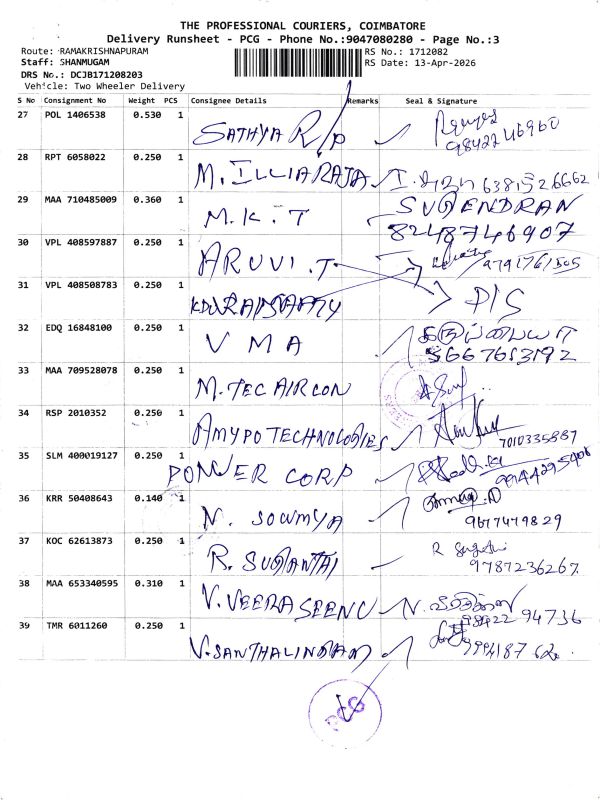 THE PROFESSIONAL COURIERS, COIMBATORE
Delivery Runsheet - PCG - Phone No.:9047080280 - Page No.:3
Route: RAMAKRISHNAPURAM RS No.: 1712082
Staff: SHANMUGAM RS Date: 13-Apr-2026
DRS No.: DCJB171208203
Vehicle: Two Wheeler Delivery
S No Consignment No Weight PCS Consignee Details Remarks Seal & Signature
27 POL 1406538 0.530 1
SATHYA R/P 98422 46960
28 RPT 6058022 0.250 1
M. ILLIARAJA 6381526662
29 MAA 710485009 0.360 1 SUGENDRAN
M.K.T 8248746907
30 VPL 408597887 0.250 1
ARUVI.T 9791761505
31 VPL 408508783 0.250 1
D/S
32 EDQ 16848100 0.250 1
V M A 5667613192
33 MAA 709528078 0.250 1
M.TEC AIRCON
34 RSP 2010352 0.250 1
AMYPO TECHNOLOGIES 7010335887
35 SLM 400019127 0.250 1
POWER CORP
36 KRR 50408643 0.140 1
N. SOWMYA 9677479829
37 KOC 62613873 0.250 1
R. SUGANTHI 9787236267
38 MAA 653340595 0.310 1
V. VEERA SEENU 98422 94736
39 TMR 6011260 0.250 1
V. SANTHALINGAM
PCG